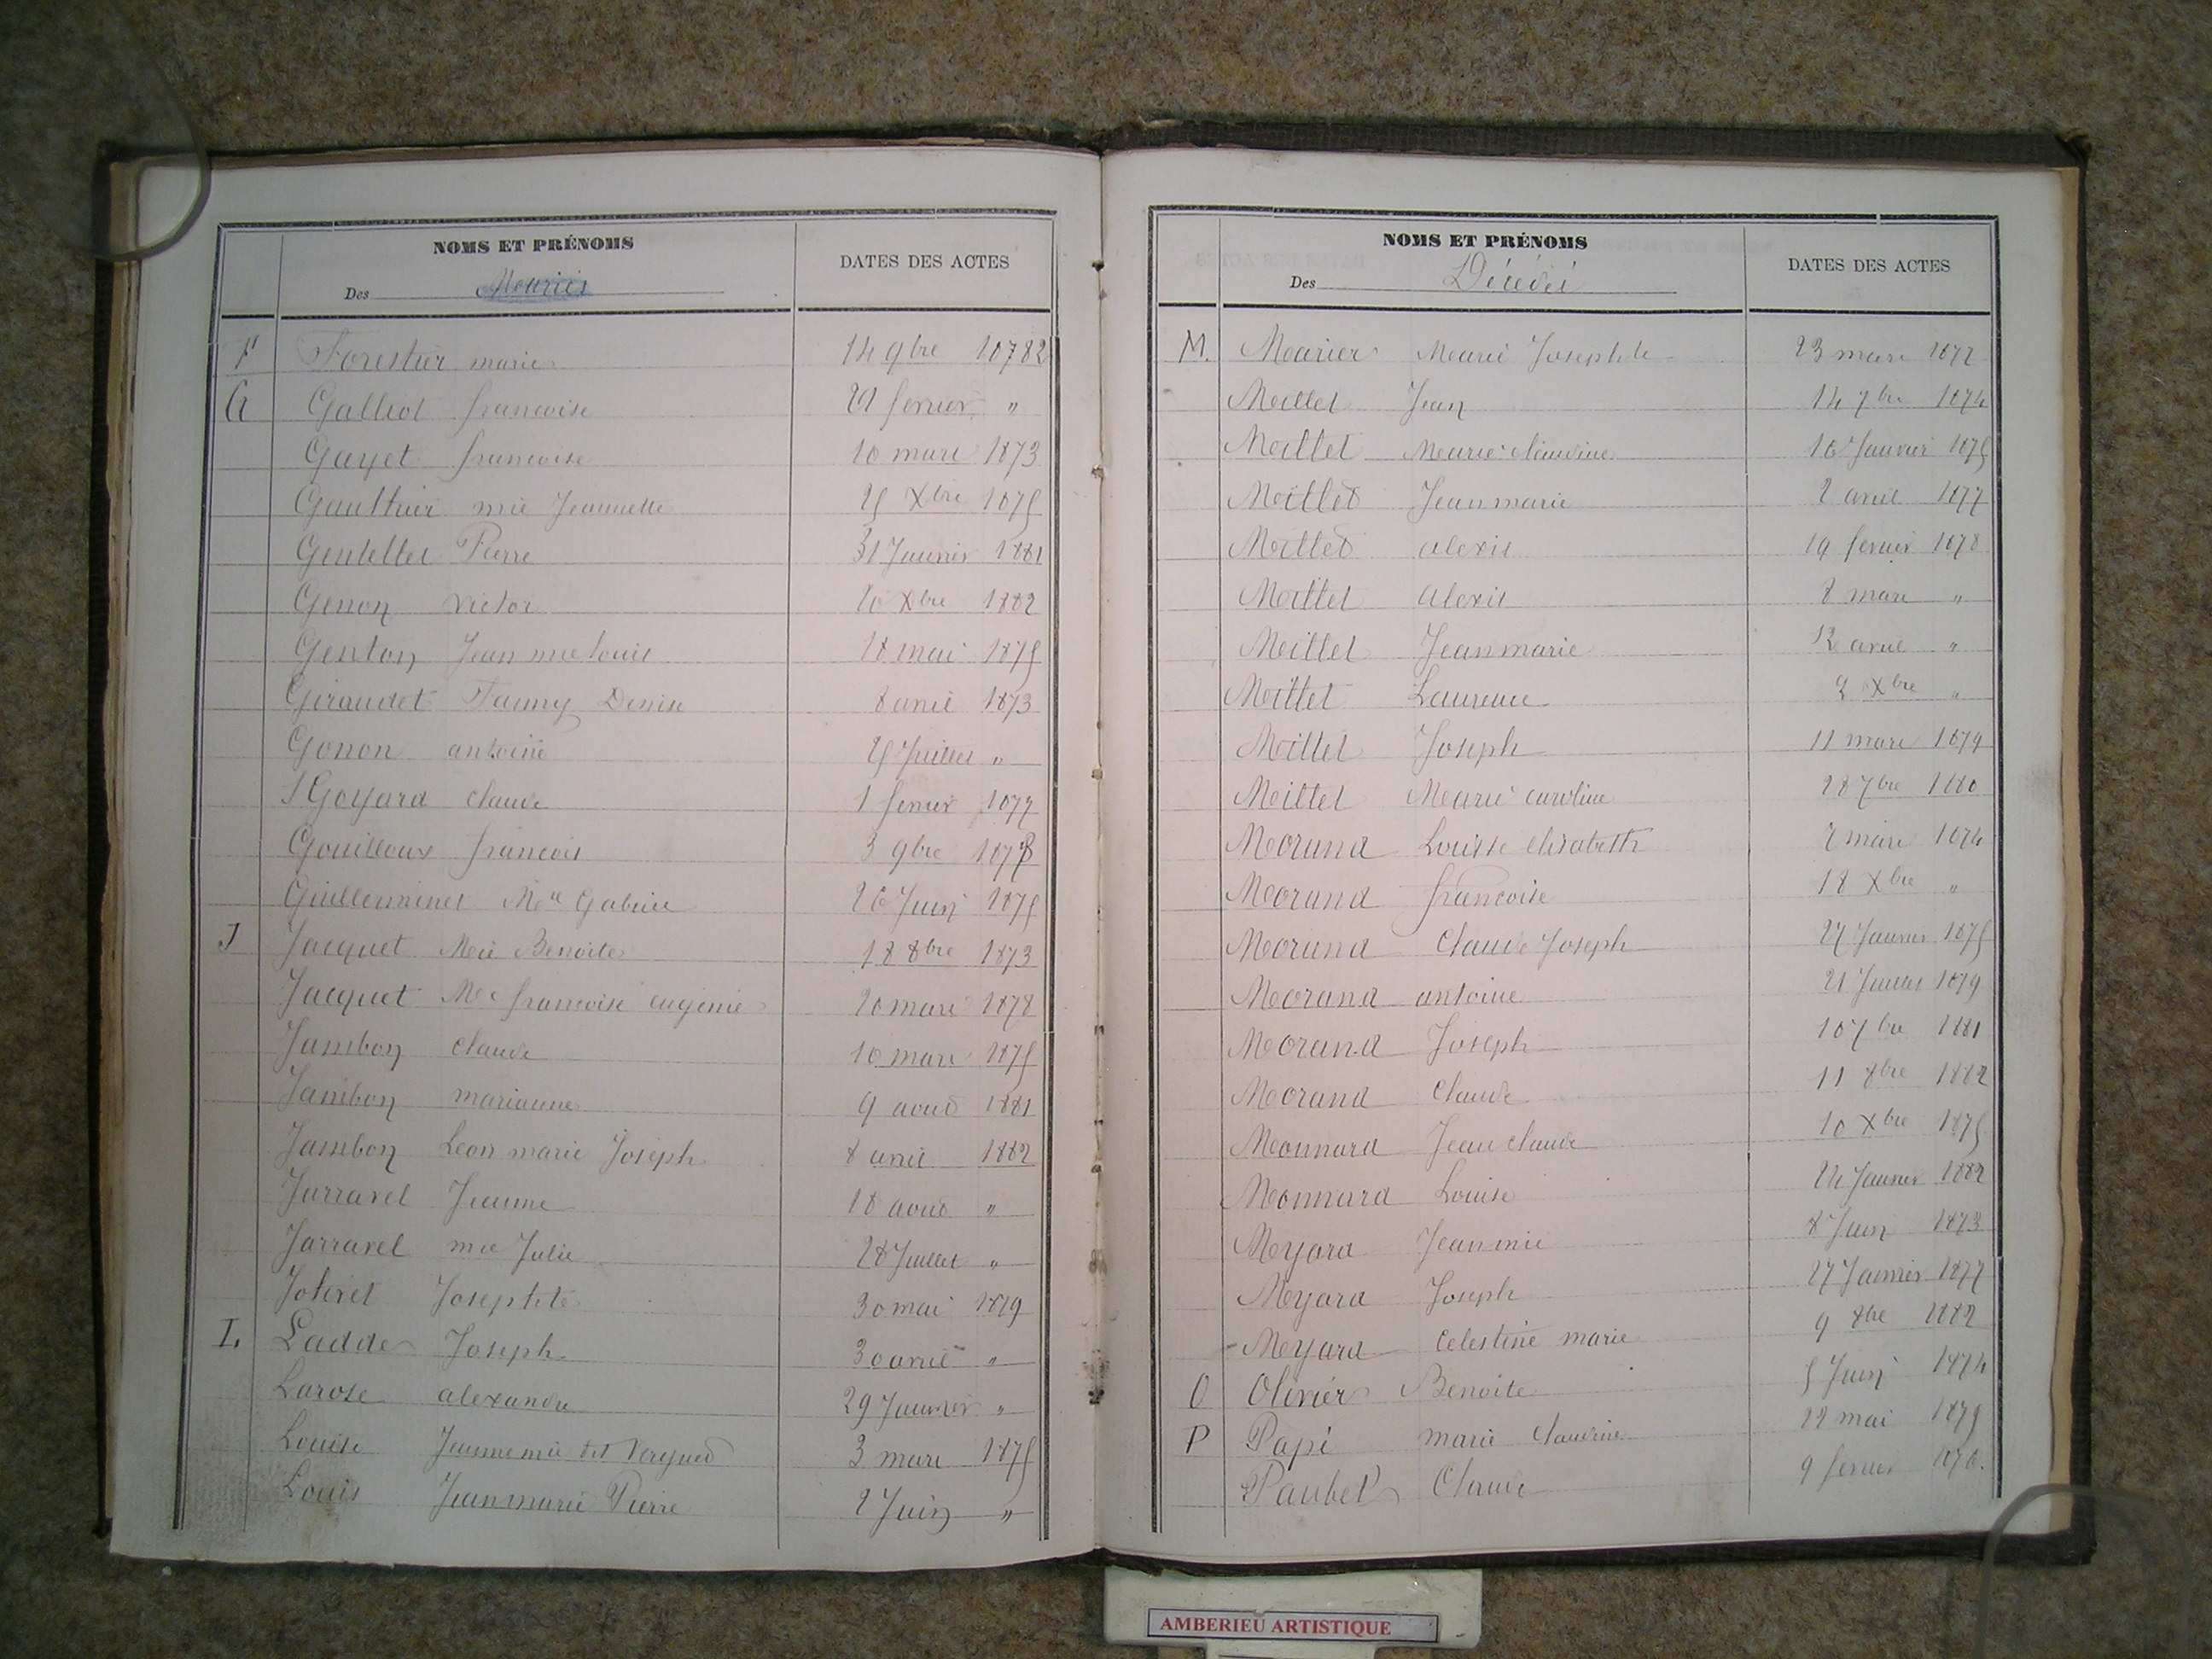 NOMS ET PRÉNOMS
Des Mariés
DATES DES ACTES
F Forestier marie 14 9bre 10782
G Galliot francoise 21 fevrier "
Gayet francoise 10 mars 1873
Gaulthier mie Jeannette 25 Xbre 1875
Gentellet Pierre 31 Janvier 1881
Genon victor 10 Xbre 1882
Genton Jean mie louis 18 mai 1875
Giraudet Fanny Denise 8 avril 1873
Gonon antoine 25 Juillet "
Goyard claude 1 fevrier 1877
Gouilloux francois 3 9bre 1878
Guillerminet Mie Gabriel 26 Juin 1875
J Jacquet Mie Benoite 18 8bre 1873
Jacquet Mie francoise eugenie 20 mars 1878
Jambon claude 10 mars 1875
Jambon marianne 9 aout 1881
Jambon Leon marie Joseph 8 avril 1882
Jarravel Jeanne 18 aout "
Jarravel mie Julie 28 Juillet "
Jolivet Josephte 30 mai 1879
L Ladde Joseph 30 avril "
Larose alexandre 29 Janvier "
Louise Jeanne mie dit 3 mars 1875
Louis Jean marie Pierre 2 Juin "
NOMS ET PRÉNOMS
Des Décédés
DATES DES ACTES
M. Marier Marie Josephte 23 mars 1872
Meillet Jean 14 7bre 1874
Meillet Marie claudine 16 Janvier 1875
Meillet Jean marie 2 avril 1877
Meillet alexis 19 fevrier 1878
Meillet alexis 8 mars "
Meillet Jean marie 12 avril "
Meillet Laurence 2 Xbre "
Meillet Joseph 11 mars 1879
Meillet Marie caroline 28 7bre 1880
Morand Louise elisabeth 2 mars 1874
Morand francoise 18 Xbre "
Morand Claude Joseph 27 Janvier 1875
Morand antoine 21 Juillet 1879
Morand Joseph 10 7bre 1881
Morand Claude 11 8bre 1882
Monnard Jean claude 10 Xbre 1875
Monnard Louise 24 Janvier 1882
Meyard Jean mie 8 Juin 1873
Meyard Joseph 27 Janvier 1877
Meyard celestine marie 9 8bre 1882
O Olivier Benoite 5 Juin 1874
P Papi marie claudine 22 mai 1875
Paubel Claude 9 fevrier 1876.
AMBERIEU ARTISTIQUE